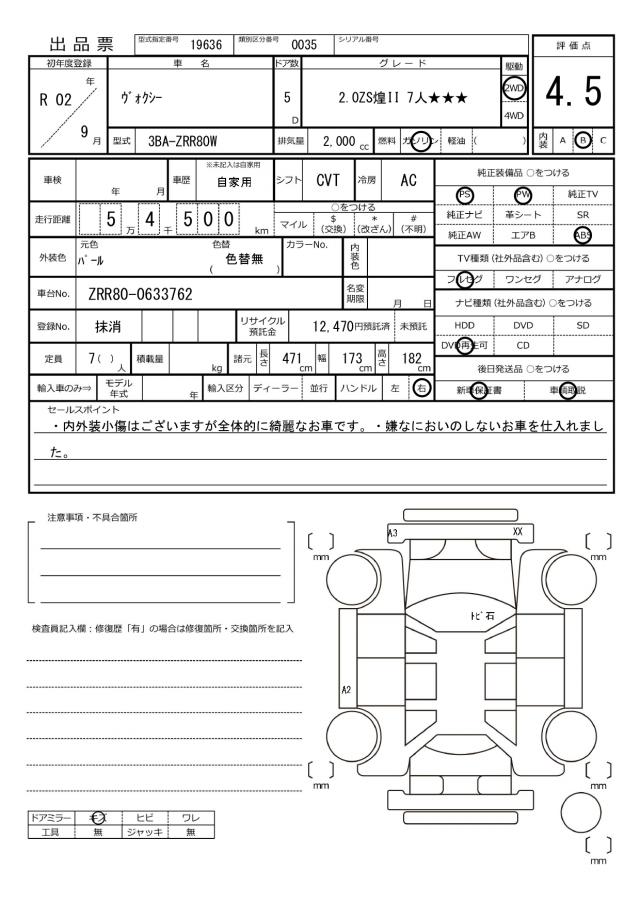 出品票
型式指定番号 19636 類別区分番号 0035 シリアル番号
評価点
4.5
内装 A B C
初年度登録 車名 ドア数 グレード 駆動
R 02 年 9 月
ヴォクシー
5 D
2.0ZS煌II 7人★★★
2WD
4WD
型式 3BA-ZRR80W 排気量 2,000 cc 燃料 ガソリン 軽油 ( )
車検 年 月 車歴 ※未記入は自家用 自家用 シフト CVT 冷房 AC
走行距離 5 万 4 千 5 0 0 km
○をつける
マイル $(交換) *(改ざん) #(不明)
外装色 元色 パール 色替 ( 色替無 ) カラーNo. 内装色
車台No. ZRR80-0633762 名変期限 月 日
登録No. 抹消 リサイクル預託金 12,470円預託済 未預託
定員 7 ( ) 人 積載量 kg 諸元 長さ 471 cm 幅 173 cm 高さ 182 cm
輸入車のみ⇒ モデル年式 年 輸入区分 ディーラー 並行 ハンドル 左 右
純正装備品 ○をつける
PS PW 純正TV
純正ナビ 革シート SR
純正AW エアB ABS
TV種類 (社外品含む) ○をつける
フルセグ ワンセグ アナログ
ナビ種類 (社外品含む) ○をつける
HDD DVD SD
DVD再生可 CD
後日発送品 ○をつける
新車保証書 車輌取説
セールスポイント
・内外装小傷はございますが全体的に綺麗なお車です。・嫌なにおいのしないお車を仕入れまし
た。
注意事項・不具合箇所
検査員記入欄:修復歴「有」の場合は修復箇所・交換箇所を記入
A3 XX
mm mm
トビ石
A2
mm mm
mm
ドアミラー キズ ヒビ ワレ
工具 無 ジャッキ 無